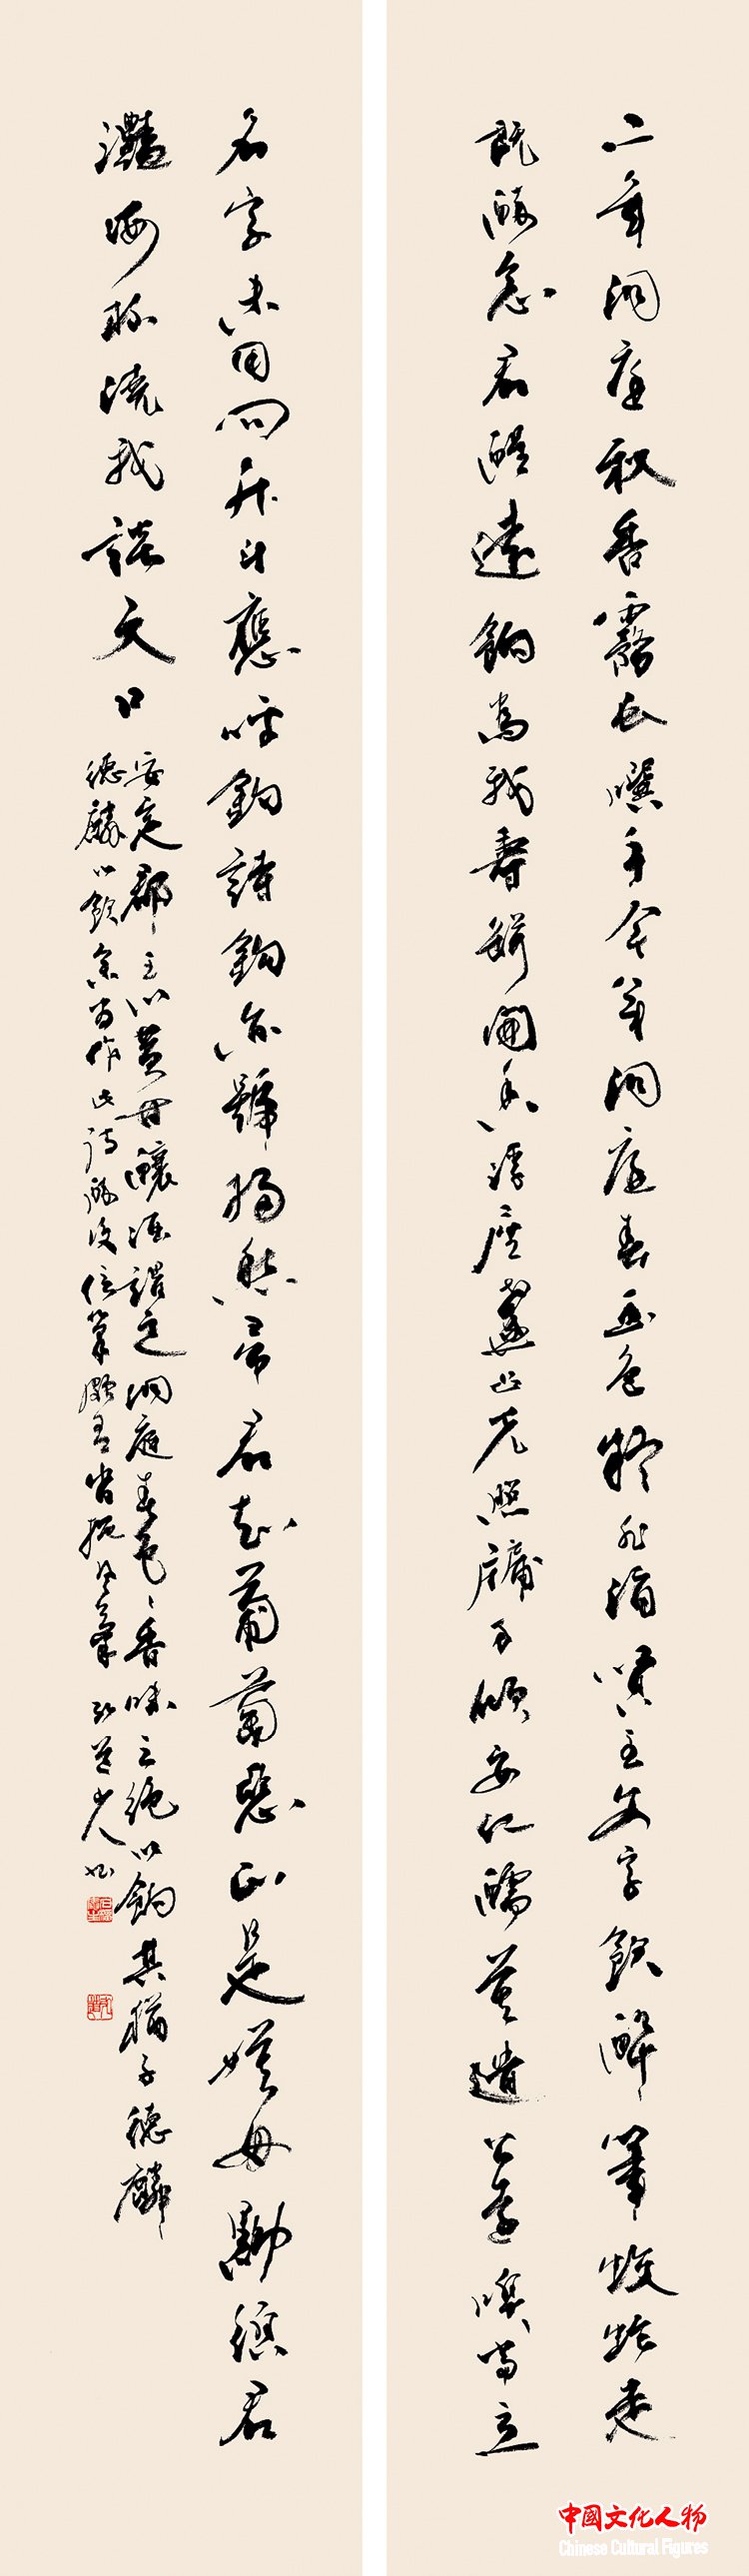 二年洞庭秋香霧長噀手今年洞庭春玉色疑非酒賢王文字飲醉筆蛟蛇走
既醉念君醒遠餉為我壽瓶開香浮座盞凸光照牖方傾安仁醽莫遣公遠嗅當立
名字未用問升斗應呼釣詩鉤亦號掃愁帚君知葡萄惡正是嫫母黝須君
灩海杯澆我談天口
安定郡王以黃甘釀酒謂之洞庭春色〻香味三絕以餉其猶子德麟
德麟以飲余為作此詩醉後信筆頗有沓拖風氣
中國文化人物
Chinese Cultural Figures